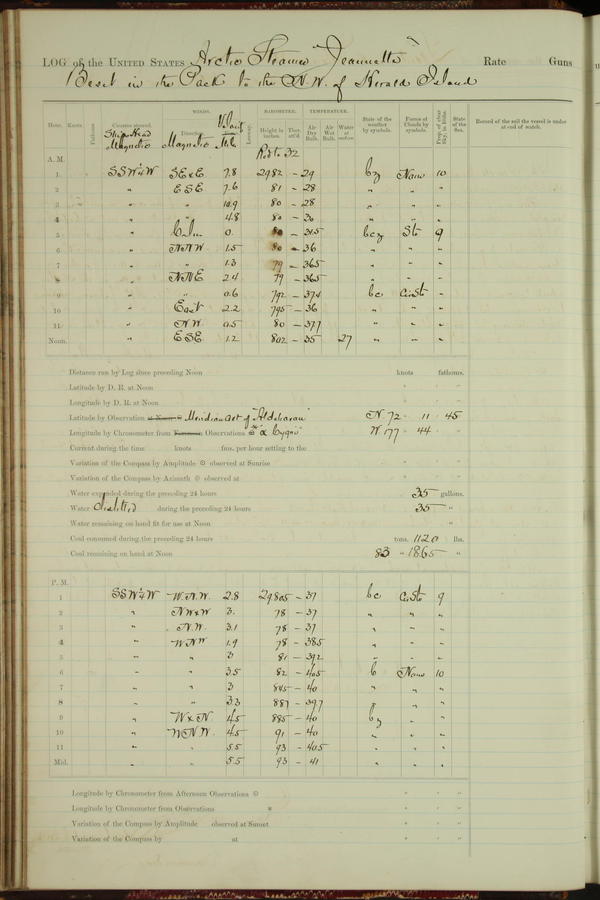 LOG of the UNITED STATES Arctic Steamer "Jeannette" Rate Guns
Beset in the Pack to the N.W. of Herald Island
Hour. Knots. Fathoms. Courses steered. WINDS. Leeway. BAROMETER. TEMPERATURE. State of the weather by symbols. Forms of Clouds by symbols. Prop. of clear Sky, in 10ths. State of the Sea. Record of the sail the vessel is under at end of watch.
Ships Head Magnetic Direction Magnetic Height in inches. Ther. att'd. Air Dry Bulb. Air Wet Bulb. Water at surface.
A. M. Red to 32
1 SSW¼W SExE 7.8 29 82 - 29 bz None 10
2 " ESE 7.6 81 - 28 " " "
3 " " 10.9 80 - 28 " " "
4 " " 4.8 80 - 30 " " "
5 " Calm 0. 80 - 31.5 bcz Str 9
6 " NNW. 1.5 80 - 36 " " "
7 " " 1.3 79 - 36.5 " " "
8 " NNE 2.4 79 - 36.5 " " "
9 " " 0.6 792 - 37.4 bc CirStr "
10 " East 2.2 795 - 36 " " "
11 " NW. 0.5 80 - 37.7 " " "
Noon. " ESE 1.2 802 - 35 27 " " "
Distance run by Log since preceding Noon knots fathoms.
Latitude by D. R. at Noon ° ' "
Longitude by D. R. at Noon ° ' "
Latitude by Observation at Noon Meridian alt of "Aldebaran" N 72 ° 11 ' 45
Longitude by Chronometer from Observations "α Cygni" W 177 ° 44 '
Current during the time knots fms. per hour setting to the
Variation of the Compass by Amplitude observed at Sunrise
Variation of the Compass by Azimuth observed at
Water expended during the preceding 24 hours 35 gallons.
Water distilled during the preceding 24 hours 35 "
Water remaining on hand fit for use at Noon "
Coal consumed during the preceding 24 hours tons. 1120 lbs.
Coal remaining on hand at Noon 83 " 1865 "
P. M.
1 SSW¼W W.N.W. 2.8 29 805 - 37 bc CirStr 9
2 " NWxW 3. 78 - 37 " " "
3 " N.W. 3.1 78 - 37 " " "
4 " WNW 1.9 78 - 38.5 " " "
5 " " 3 81 - 39.2 " " "
6 " " 3.5 82 - 40.5 b None 10
7 " " 3 845 - 40 " " "
8 " " 3.3 887 - 39.7 " " "
9 " WxN. 4.5 885 - 40 bz " "
10 " WNW. 4.5 91 - 40 " " "
11 " " 5.5 93 - 40.5 " " "
Mid. " " 5.5 93 - 41 " " "
Longitude by Chronometer from Afternoon Observations ° ' "
Longitude by Chronometer from Observations * ° ' "
Variation of the Compass by Amplitude observed at Sunset ° ' "
Variation of the Compass by at ° ' "